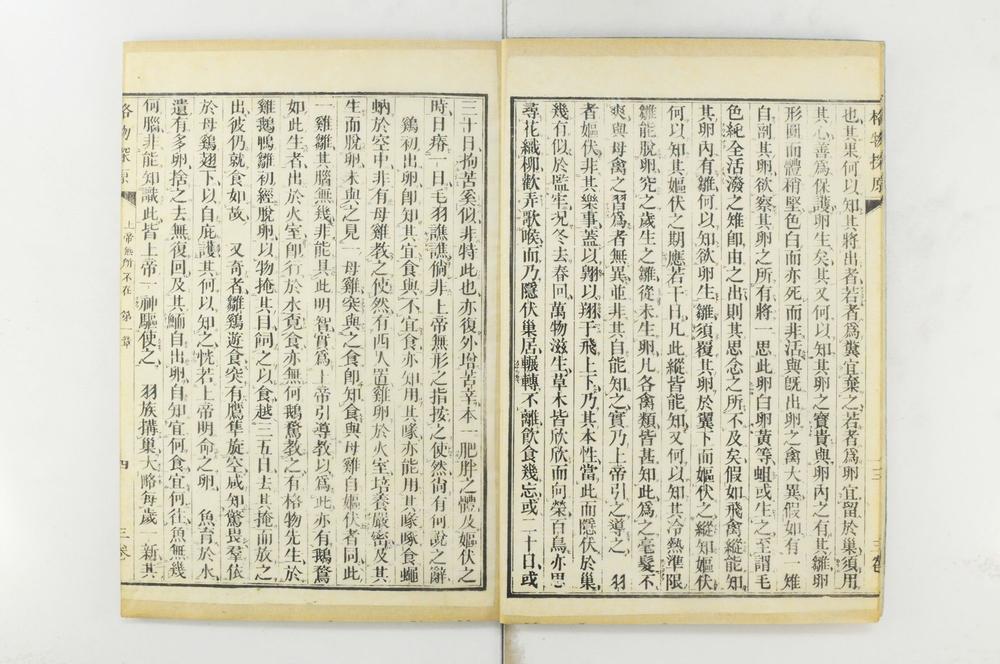 也其果何以知其將出者若者爲糞宜棄之若者爲卵宜留於巢須用
其心善爲保護卵生矣其又何以知其卵之寶貴與卵內之有其雛卵
形圓而體稍堅色白而亦死而非活與旣出卵之禽大異假如有一雉
自剖其卵欲察其卵之所有將一思此卵白卵黃等蛆或生之至謂毛
色純全活潑之雉卽由之出則其思念之所不及矣假如飛禽縱能知
其卵內有雛何以知欲卵生雛須覆其卵於翼下而嫗伏之縱知嫗伏
何以知其嫗伏之期應若干日凡此縱皆能知又何以知其冷熱準限
雛能脫卵究之歲生之雛從未生卵凡各禽類皆甚知此爲之毫髮不
爽與母禽之習爲者無異並非其自能知之實乃上帝引之導之 羽
者嫗伏非其樂事蓋以翺以翔于飛上下乃其本性當此而隱伏於巢
幾有似於監牢況冬去春回萬物滋生草木皆欣欣而向榮百鳥亦思
尋花織柳歡弄歌喉而乃隱伏巢居輾轉不離飲食幾忘或二十日或
格物探原
上帝無所不在 第一章
四
三卷
三十日拘苦奚似非特此也亦復外增苦辛本一肥胖之體及嫗伏之
時日瘠一日毛羽譙譙倘非上帝無形之指按之使然尙有何說之辭
雞初出卵卽知其宜食與不宜食亦知用其喙亦能用其喙啄食蠅
蚋於空中非有母雞教之使然有西人置雞卵於火室培養嚴密及其
生而脫卵未與之見一母雞突與之食卽知食與母雞自嫗伏者同此
一雞雛其腦無幾非能具此明智實爲上帝引導教以爲此亦有鵝鶩
如此生者出於火室卽行於水覓食亦無何鵝鶩教之有格物先生於
雞鵝鴨雛初經脫卵以物掩其目飼之以食越三五日去其掩而放之
出彼仍就食如故 又奇者雛鷄遊食突有鷹隼旋空咸知驚畏羣依
於母鷄翅下以自庇護其何以知之恍若上帝明命之卵 魚育於水
遺有多卵捨之去無復回及其鮞自出卵自知宜何食宜何往魚無幾
何腦非能知識此皆上帝一神驅使之 羽族搆巢大略每歲一新其